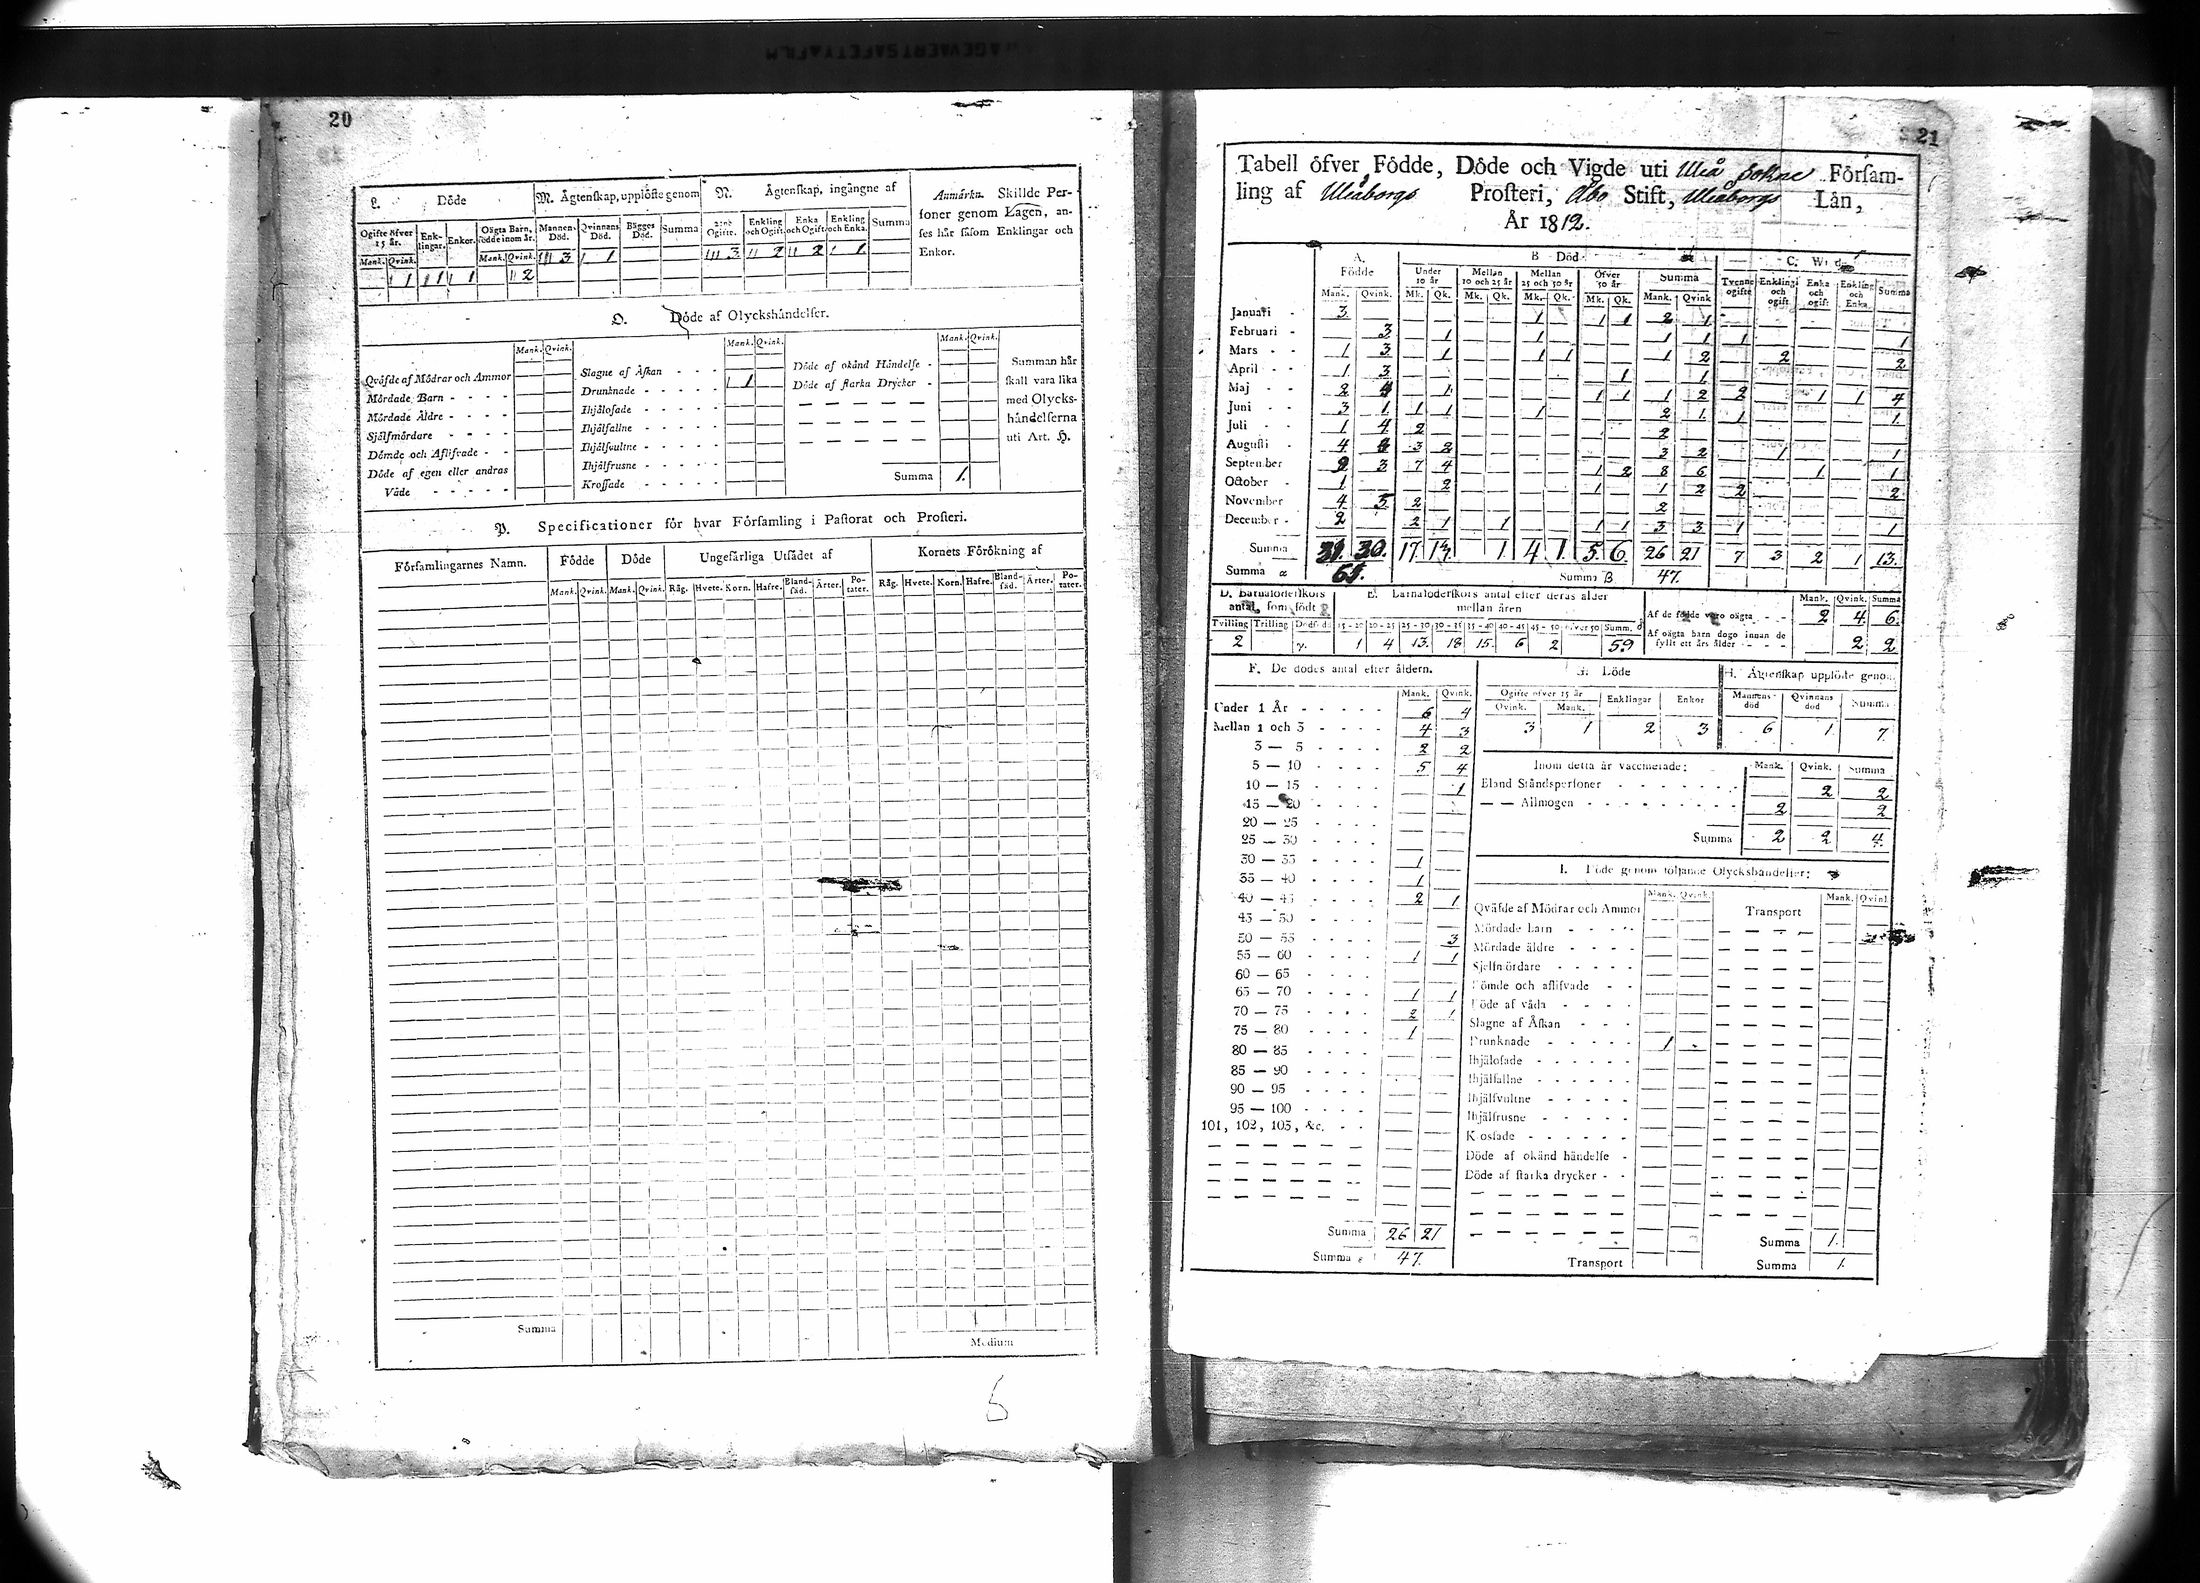 20
L. Döde
M. Ägtenskap, upplöste genom
N. Ägtenskap, ingångne af
Anmärkn. Skillde Per-
soner genom Lagen, an-
ses här såsom Enklingar och
Enkor.
Ogifte öfver 15 år. Enk-lingar. Enkor. Oägta Barn, födde inom år. Mannens Död. Qvinnans Död. Bägges Död. Summa Ogifte. Enkling och Ogift. Enka och Ogift. Enkling och Enka. Summa
Mank. Qvink. Mank. Qvink. 3 1 3 2 2 1
1 1 1 2
O. Döde af Olyckshändelser.
Mank. Qvink. Mank. Qvink. Mank. Qvink.
Qväfde af Mödrar och Ammor
Mördade Barn - - - -
Mördade Äldre - - - -
Självmördare - - - -
Dömde och Aflifvade - -
Döde af egen eller andras
Våde - - - - -
Slagne af Åskan - - -
Drunknade - - - - - 1
Ihjälofade - - - - -
Ihjälfallne - - - - -
Ihjälsvultne - - - - -
Ihjälfrusne - - - - -
Krossade - - - - -
Döde af okänd Händelse -
Döde af starka Drycker -
Summa 1.
Summan här
skall vara lika
med Olycks-
händelserna
uti Art. H.
P. Specificationer för hvar Församling i Pastorat och Prosteri.
Församlingarnes Namn. Födde Döde Ungefärliga Utsädet af Kornets Förökning af
Mank. Qvink. Mank. Qvink. Råg. Hvete. Korn. Hafre. Bland-säd. Ärter. Po-tater. Råg. Hvete. Korn. Hafre. Bland-säd. Ärter. Po-tater.
Summa
Medium
21
Tabell öfver Födde, Döde och Vigde uti Uleå Sokne Försam-
ling af Uleåborgs Prosteri, Åbo Stift, Uleåborgs Län,
År 1812.
A. Födde B. Döde C. Wigde
Under 10 år Mellan 10 och 25 år Mellan 25 och 50 år Öfver 50 år Summa Tvenne ogifte Enkling och ogift Enka och ogift Enkling och Enka Summa
Mank. Qvink. Mk. Qk. Mk. Qk. Mk. Qk. Mk. Qk. Mank. Qvink
Januari - 3 1 1 1 2 1
Februari - 3 1 1 1 1 1 1
Mars - - 1 3 1 1 1 1 2 2 2
April - - 1 3 1 1
Maj - - 2 4 1 1 1 1 2 2 1 1 4
Juni - - 3 1 1 1 1 2 1 1 1
Juli - - 1 4 2 2
Augusti - 4 3 2 3 2 1 1
September 2 3 7 4 1 2 8 6 1 1
October - 1 2 1 1 2 2 2
November 4 5 2 2
December - 2 2 1 1 1 1 3 3 1 1
Summa 31. 30. 17 13 1 4 1 5 6 26 21 7 3 2 1 13.
Summa α 61. Summa β 47.
D. Barnaföderskors antal, som födt
E. Barnaföderskors antal efter deras ålder
mellan åren
Tvilling Trilling Dödfödde 15-20 20-25 25-30 30-35 35-40 40-45 45-50 öfver 50 Summ.
2 1 4 13. 18 15. 6 2 59
Mank. Qvink. Summa
Af de födde voro oägta - - - 2 4 6.
Af oägta barn dogo innan de
fyllt ett års ålder - - - 2 2
F. De dödes antal efter åldern.
Mank. Qvink.
Under 1 År - - - - - 6 4
Mellan 1 och 3 - - - - 4 3
3 — 5 - - - - 2 2
5 — 10 - - - - 5 4
10 — 15 - - - - 1
15 — 20 - - - -
20 — 25 - - - -
25 — 30 - - - -
30 — 35 - - - - 1
35 — 40 - - - - 1
40 — 45 - - - - 2 1
45 — 50 - - - -
50 — 55 - - - - 3
55 — 60 - - - - 1 1
60 — 65 - - - -
65 — 70 - - - - 1 1
70 — 75 - - - - 2 1
75 — 80 - - - - 1
80 — 85 - - - -
85 — 90 - - - -
90 — 95 - - - -
95 — 100 - - - -
101, 102, 103, &c. - -
Summa 26 21
Summa 47.
G. Döde
Ogifte öfver 15 år Enklingar Enkor
Qvink. Mank.
3 1 2 3
H. Ägtenskap upplöste genom
Mannens död Qvinnans död Summa
6 1 7.
Inom detta år vaccinerade: Mank. Qvink. Summa
Bland Ståndspersoner - - - - - - - 2 2
— — Allmogen - - - - - - - - 2 2
Summa 2 2 4.
I. Döde genom följande Olyckshändelser:
Mank. Qvink. Mank. Qvink.
Qväfde af Mödrar och Ammor Transport
Mördade barn - - - -
Mördade äldre - - - -
Sjelfmördare - - - - -
Dömde och aflifvade - -
Döde af våda - - - -
Slagne af Åskan - - -
Drunknade - - - - - 1 -
Ihjälofade - - - - -
Ihjälfallne - - - - -
Ihjälsvultne - - - - -
Ihjälfrusne - - - - -
Krossade - - - - - -
Döde af okänd händelse -
Döde af starka drycker - -
Summa 1.
Transport Summa 1.
5